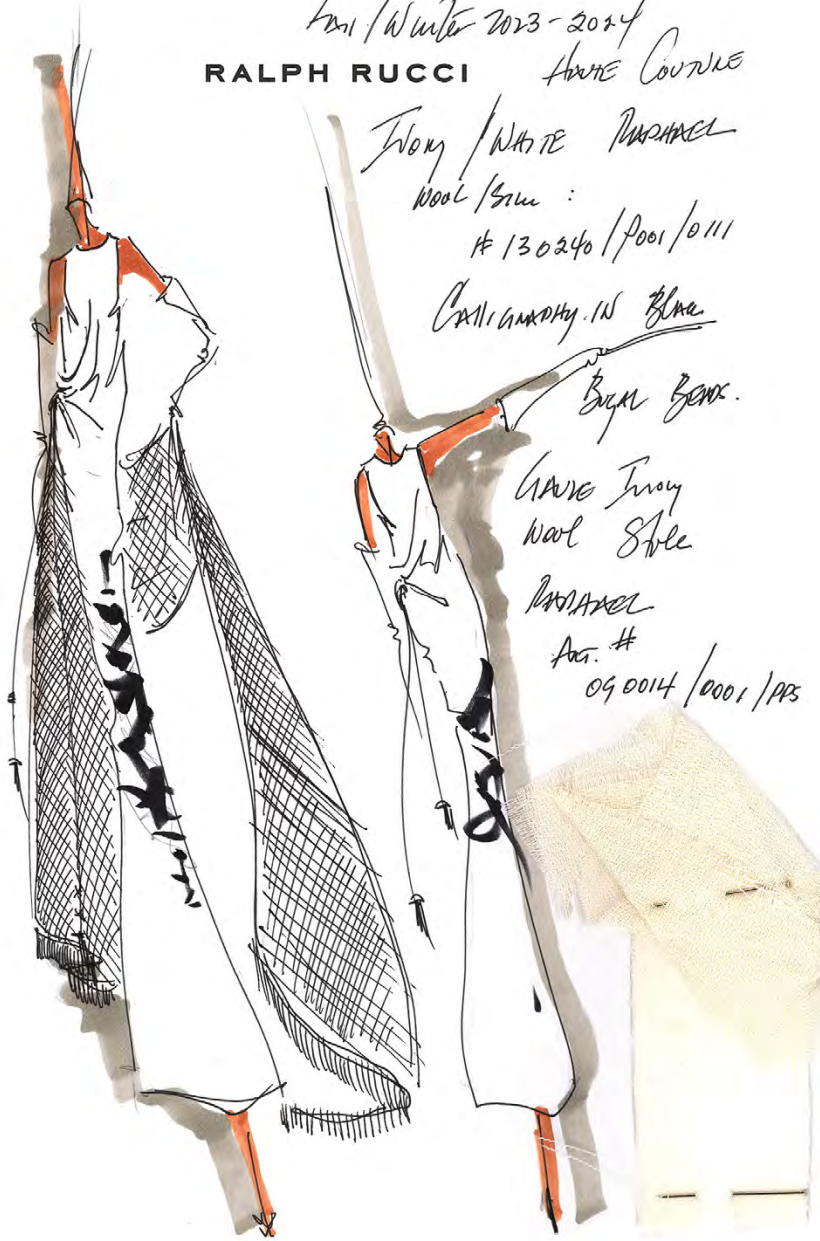 Fall/Winter 2023-2024
RALPH RUCCI
Haute Couture
Ivory/White Raphael
Wool/Silk:
#130240/P001/0111
Calligraphy in Black
Bugal Beads.
Gauze Ivory
Wool Stole
Raphael
Art. #
090014/0001/PPS